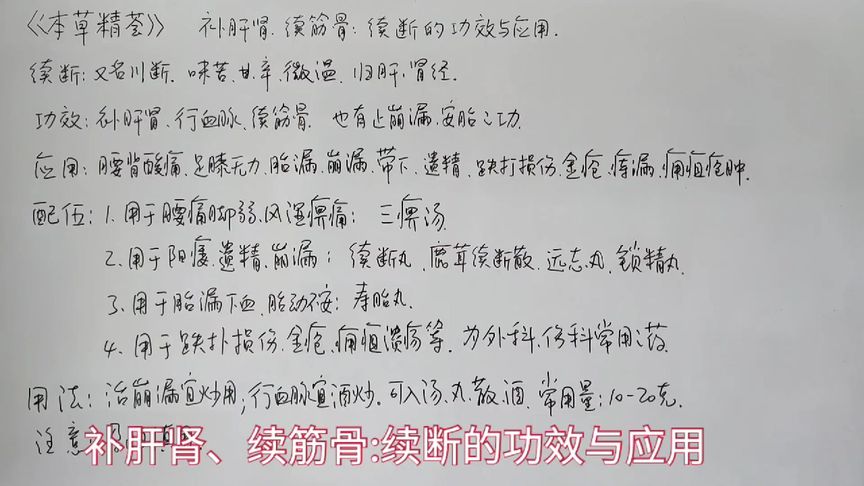 《本草精荟》 补肝肾、续筋骨:续断的功效与应用.
续断:又名川断.味苦、甘、辛、微温.归肝、肾经.
功效:补肝肾、行血脉、续筋骨.也有止崩漏、安胎之功.
应用:腰背酸痛、足膝无力、胎漏、崩漏、带下、遗精、跌打损伤、金疮、痔漏、痈疽疮肿.
配伍:1.用于腰痛脚弱、风湿痹痛:三痹汤.
2.用于阳痿、遗精、崩漏:续断丸、鹿茸续断散、远志丸、锁精丸.
3.用于胎漏下血、胎动不安:寿胎丸.
4.用于跌扑损伤、金疮、痈疽溃疡等.为外科、伤科常用之药.
用法:治崩漏宜炒用;行血脉宜酒炒.可入汤、丸、散、酒.常用量:10-20克.
注意
补肝肾、续筋骨:续断的功效与应用